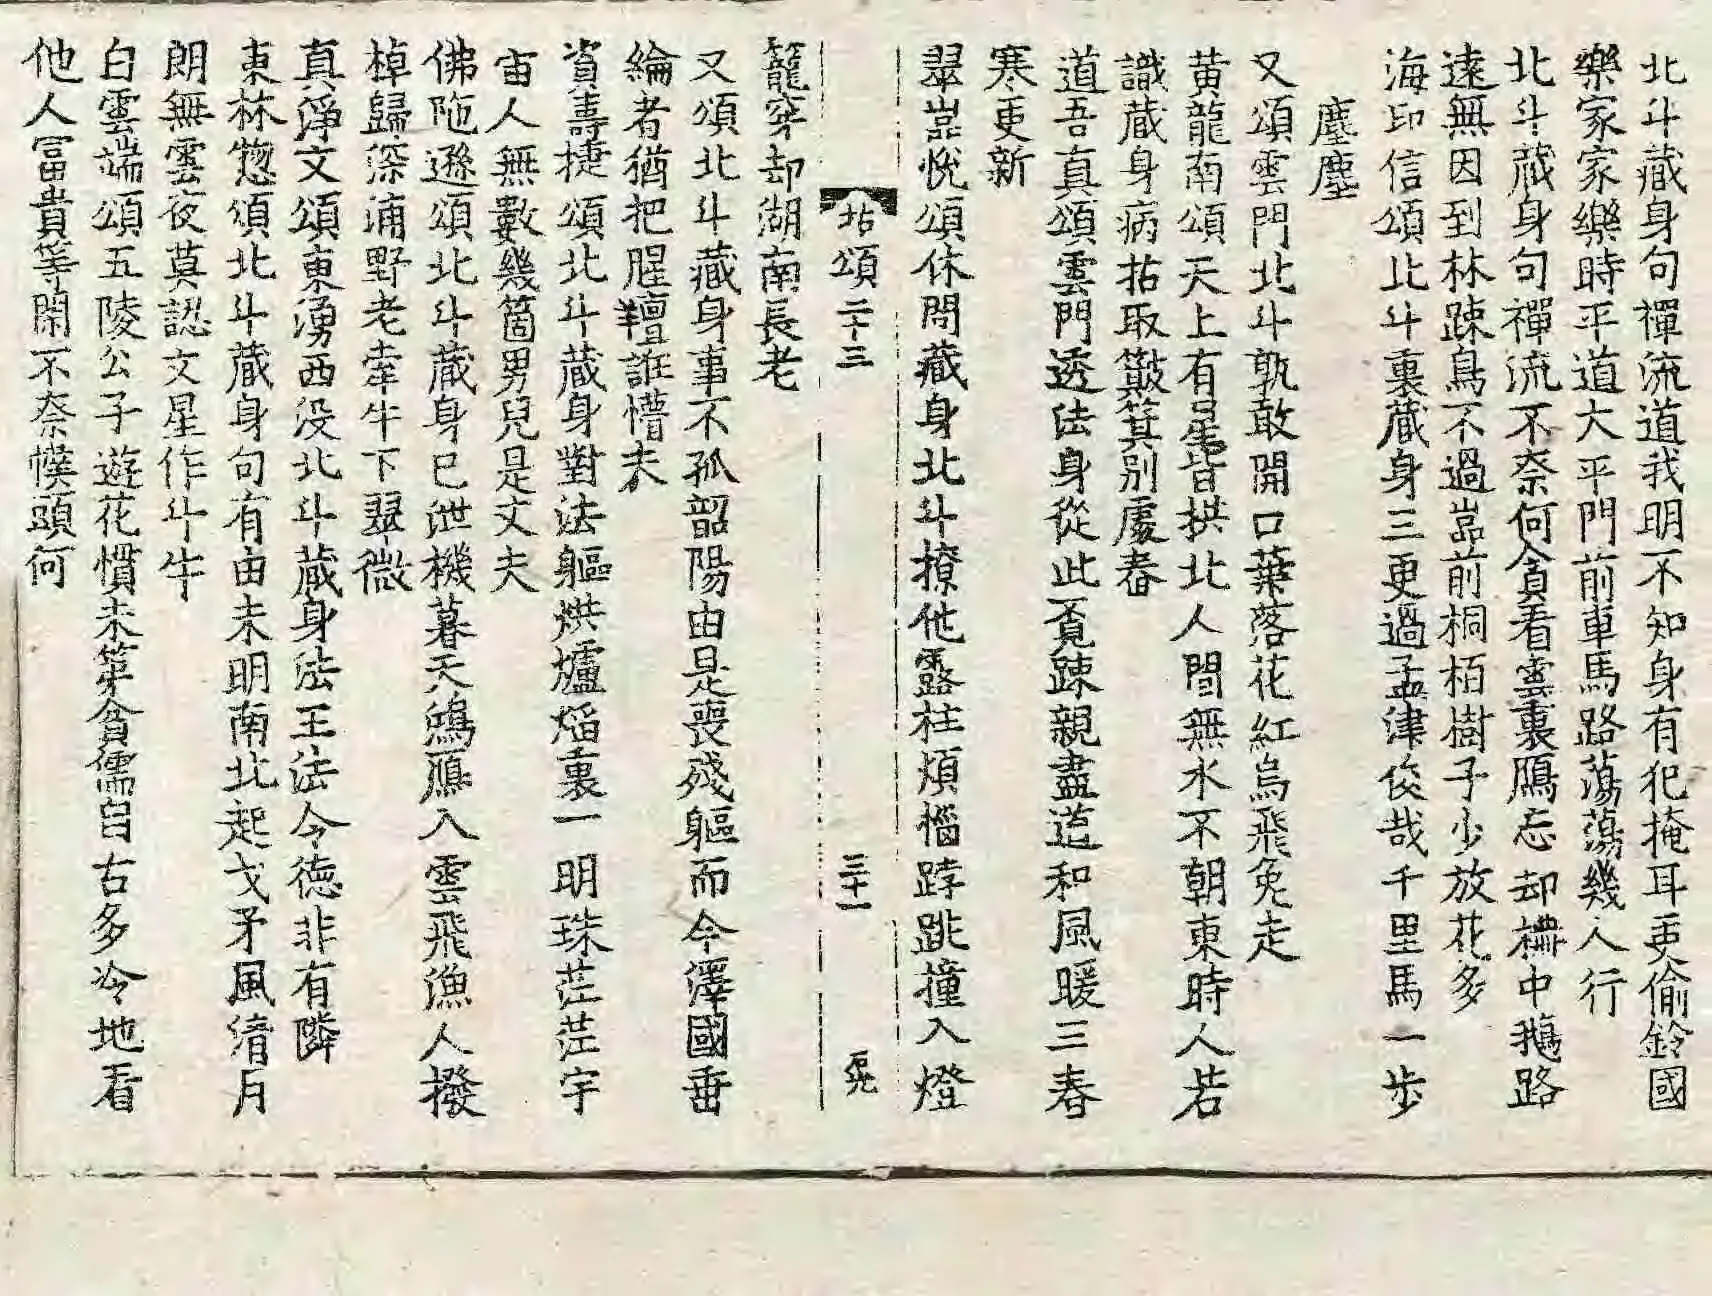 北斗藏身句禪流道我明不知身有犯掩耳更偷鈴國
樂家家樂時平道大平門前車馬路蕩蕩幾人行
北斗藏身句禪流不奈何貪看雲裏鴈忘却櫃中鵝路
遠無因到林踈鳥不過嵓前桐栢樹子少放花多
海印信頌北斗裏藏身三更過孟津俊哉千里馬一步
塵塵
又頌雲門北斗孰敢開口葉落花紅烏飛兔走
黄龍南頌天上有星皆拱北人間無水不朝東時人若
識藏身病拈取簸箕別處舂
道吾真頌雲門透法身從此覔踈親盡道和風暖三春
寒更新
翠嵓悅頌休問藏身北斗撩他露柱煩惱䟦跳撞入燈
拈頌二十三 三十一
籠穿却湖南長老
又頌北斗藏身事不孤韶陽由是喪殘軀而今澤國垂
綸者猶把腥羶誑懵夫
資壽捷頌北斗藏身對法軀烘爐焰裏一明珠茫茫宇
宙人無數幾箇男兒是丈夫
佛陁遜頌北斗藏身已泄機暮天鴻鴈入雲飛漁人撥
棹歸深浦野老牽牛下翠微
真淨文頌東湧西没北斗藏身法王法令徳非有隣
東林惣頌北斗藏身句有由未明南北起戈矛風清月
朗無雲夜莫認文星作斗牛
白雲端頌五陵公子遊花慣未第貧儒自古多冷地看
他人冨貴等閑不奈幞頭何